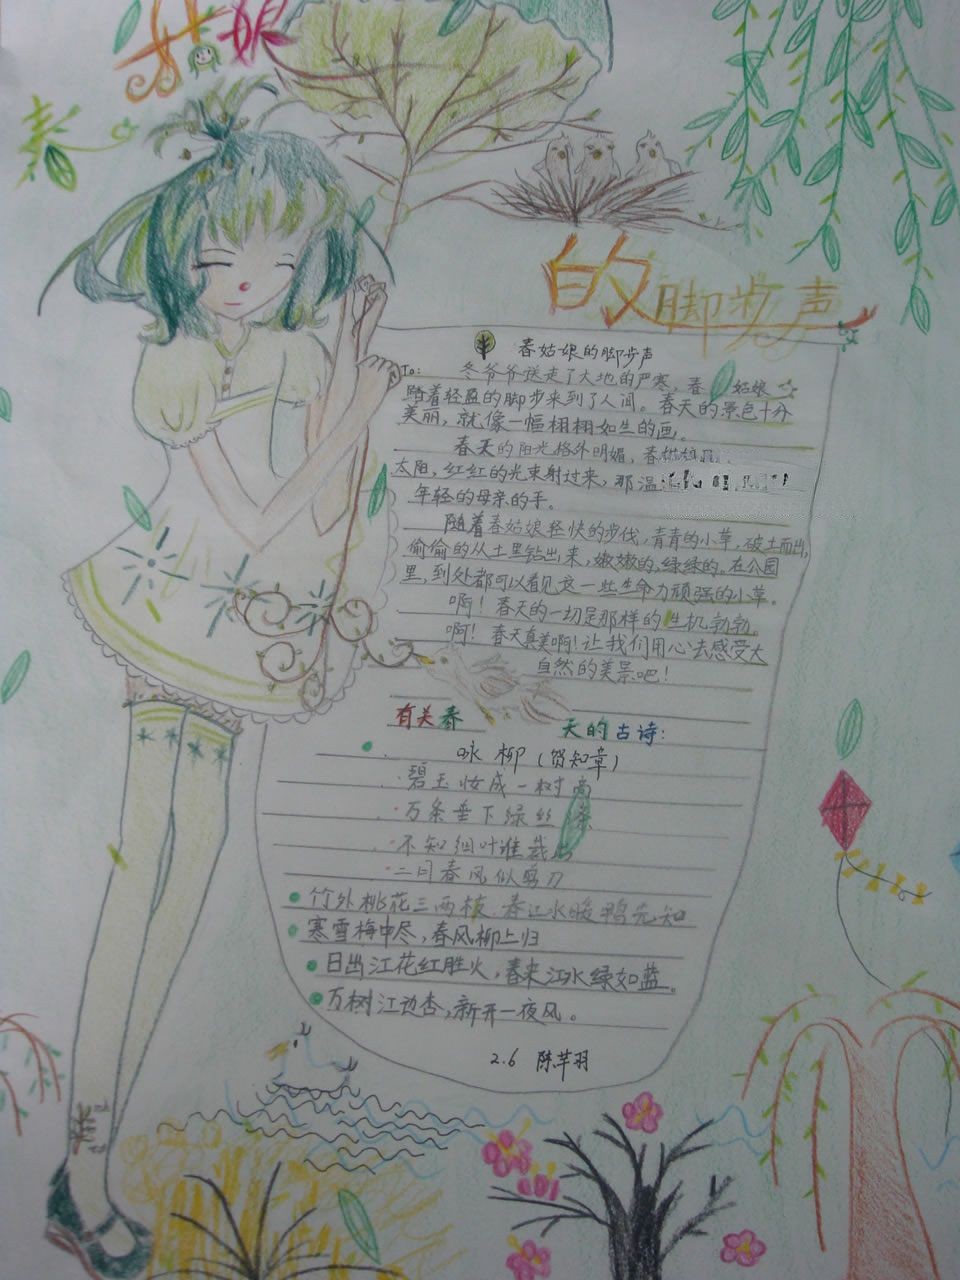 春
姑娘
的脚步声
春姑娘的脚步声
To: 冬爷爷送走了大地的严寒，春姑娘
踏着轻盈的脚步来到了人间。春天的景色十分
美丽，就像一幅栩栩如生的画。
春天的阳光格外明媚，春姑娘
太阳，红红的光束射过来，那温
年轻的母亲的手。
随着春姑娘轻快的步伐，青青的小草，破土而出，
偷偷的从土里钻出来，嫩嫩的，绿绿的。在公园
里，到处都可以看见这一些生命力顽强的小草。
啊！春天的一切是那样的生机勃勃。
啊！春天真美啊！让我们用心去感受大
自然的美景吧！
有关春天的古诗：
咏柳（贺知章）
碧玉妆成一树高
万条垂下绿丝绦
不知细叶谁裁出
二月春风似剪刀
竹外桃花三两枝，春江水暖鸭先知
寒雪梅中尽，春风柳上归
日出江花红胜火，春来江水绿如蓝。
万树江边杏，新开一夜风。
2.6 陈芊羽